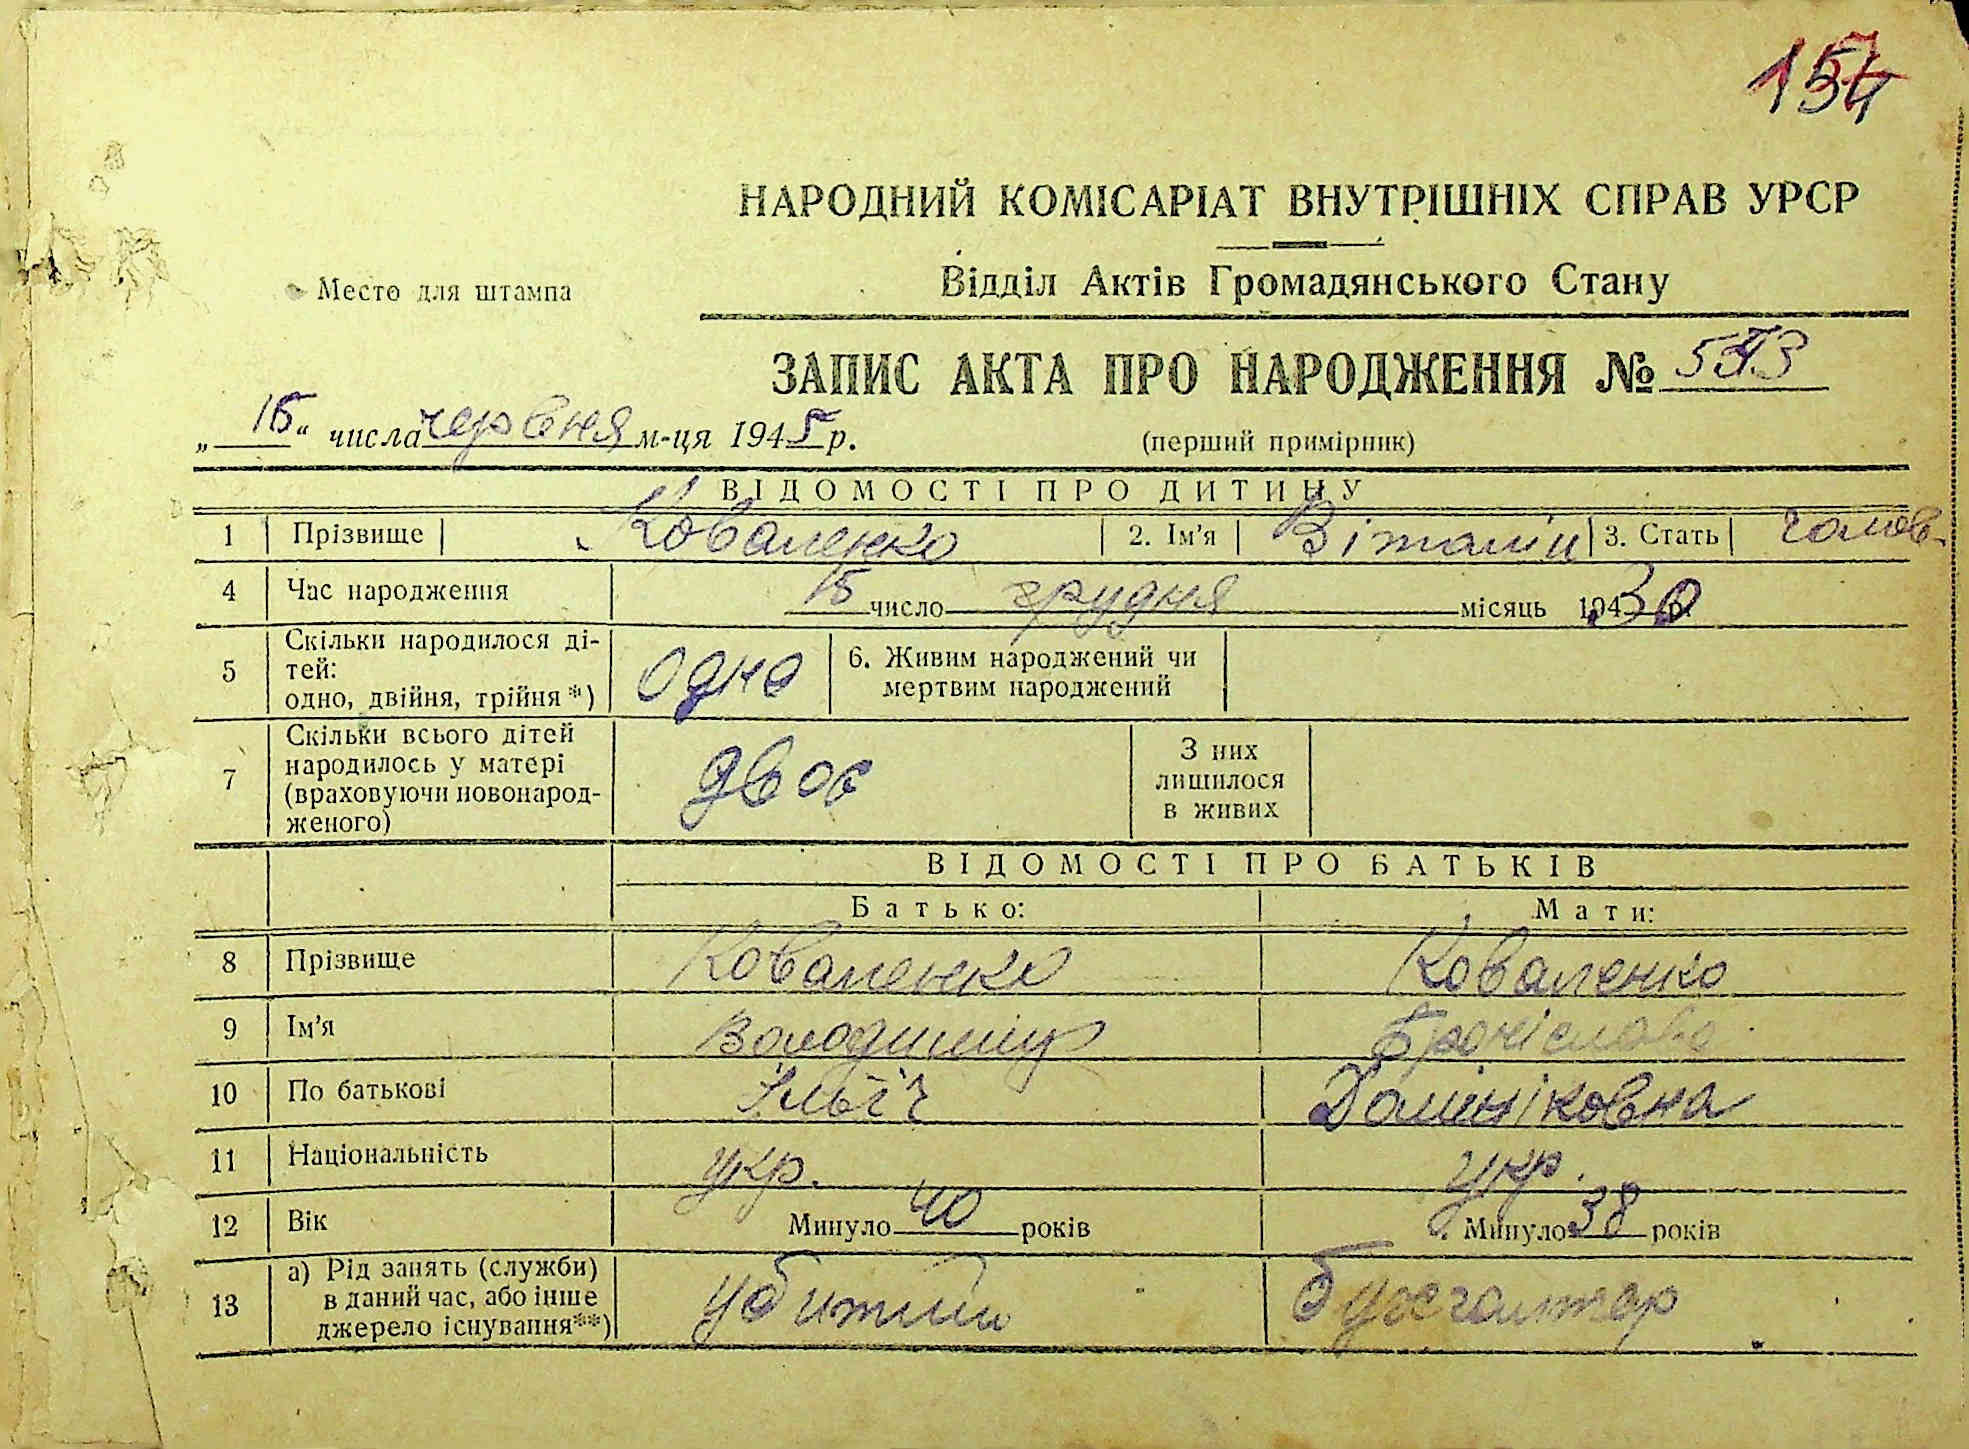 154
НАРОДНИЙ КОМІСАРІАТ ВНУТРІШНІХ СПРАВ УРСР
Место для штампа
Відділ Актів Громадянського Стану
ЗАПИС АКТА ПРО НАРОДЖЕННЯ №
„ 15 “ числа червня м-ця 1945 р.
(перший примірник)
ВІДОМОСТІ ПРО ДИТИНУ
1 Прізвище Коваленко 2. Ім'я Віталій 3. Стать чолов.
4 Час народження 15 число грудня місяць 1930 р.
5 Скільки народилося ді-
тей:
одно, двійня, трійня *) Одно 6. Живим народжений чи
мертвим народжений
7 Скільки всього дітей
народилось у матері
(враховуючи новонарод-
женого) двоє З них
лишилося
в живих
ВІДОМОСТІ ПРО БАТЬКІВ
Батько: Мати:
8 Прізвище Коваленко Коваленко
9 Ім'я Володимир Броніслава
10 По батькові Ільїч Домініковна
11 Національність укр. укр.
12 Вік Минуло 40 років Минуло 38 років
13 а) Рід занять (служби)
в даний час, або інше
джерело існування**) убитий бухгалтер